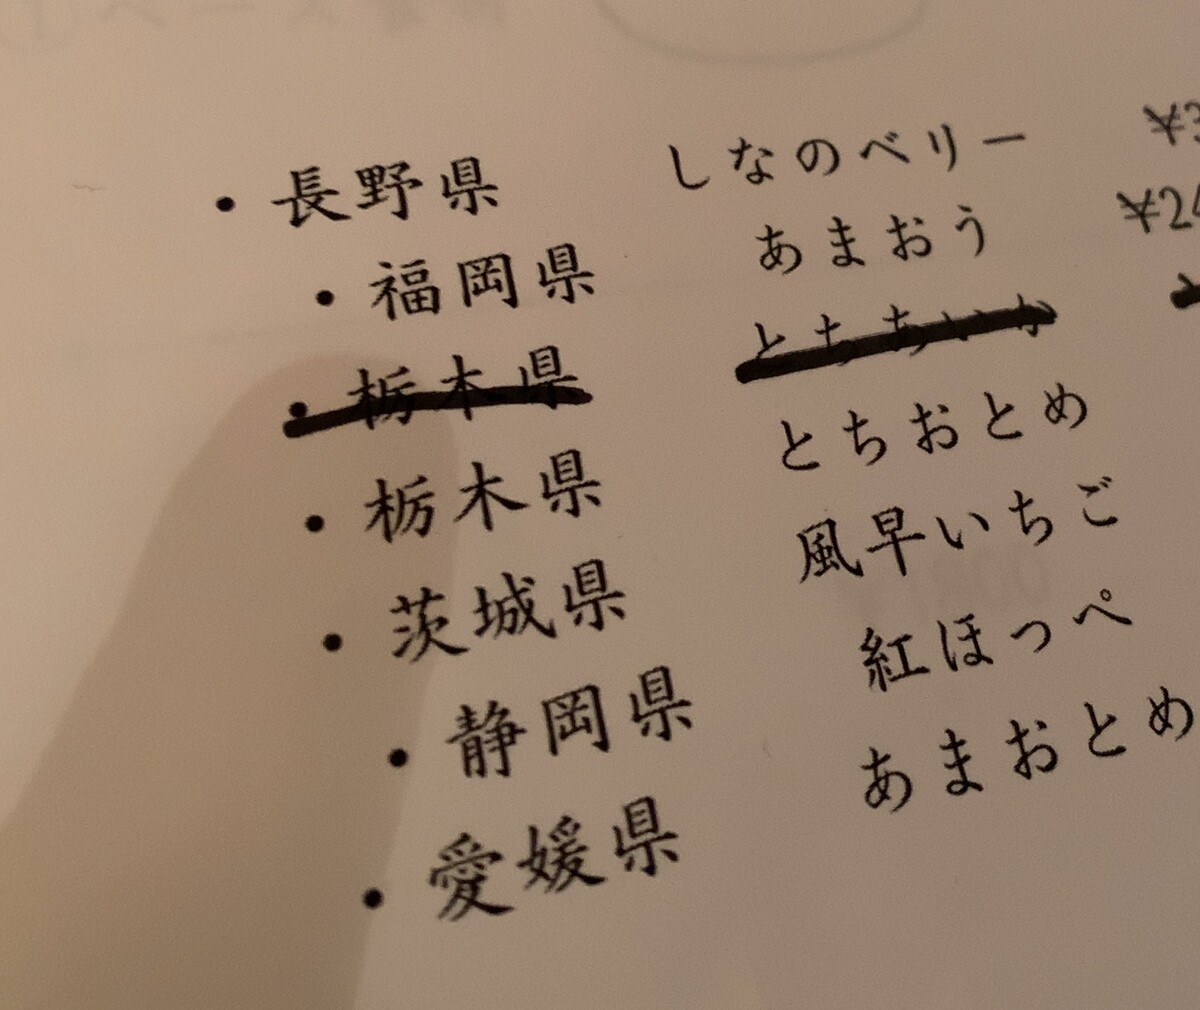 ・長野県 しなのベリー ¥3
・福岡県 あまおう ¥24
・栃木県 とちあいか
・栃木県 とちおとめ
・茨城県 風早いちご
・静岡県 紅ほっぺ
・愛媛県 あまおとめ